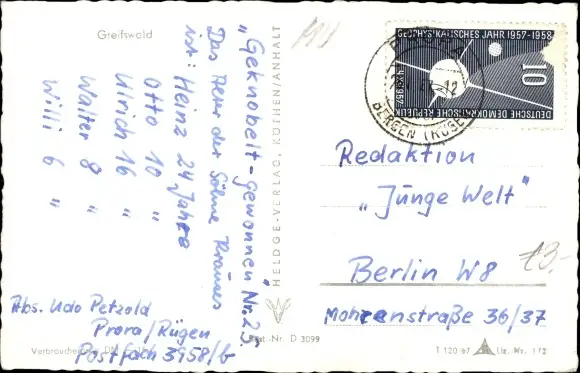 Greifswald
„Geknobelt - gewonnen" Nr. 25
Das Alter der Söhne Krauses
ist: Heinz 24 Jahre
Otto 10 "
Ulrich 16 "
Walter 8 "
Willi 6 "
Abs. Udo Petzold
Prora/Rügen
Postfach 3958/b
Verbraucher
HELDGE-VERLAG, KÖTHEN/ANHALT
Nr. D 3099
GEOPHYSIKALISCHES JAHR 1957-1958
10
DEUTSCHE DEMOKRATISCHE REPUBLIK
BERGEN (RÜGEN)
12
Redaktion
„Junge Welt"
Berlin W8
Mohrenstraße 36/37
£3.-
T 120 67 Liz.-Nr. 172